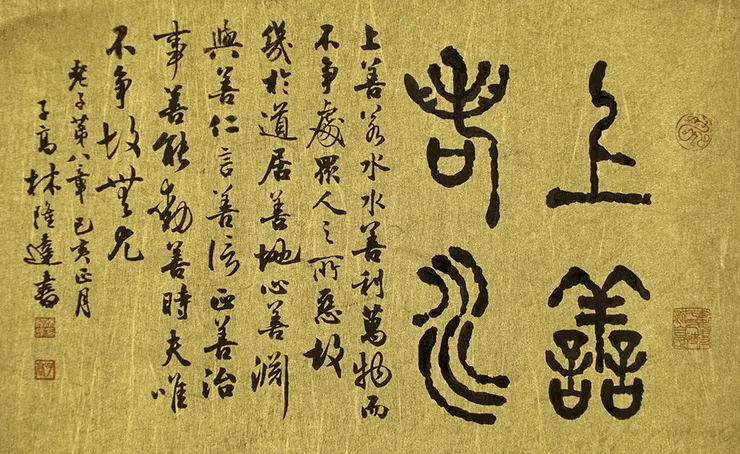 上善
若水
上善若水水善利萬物而
不争處眾人之所惡故
幾於道居善地心善淵
與善仁言善信正善治
事善能動善時夫唯
不争故無尤
老子第八章己亥正月
子高林隆達書